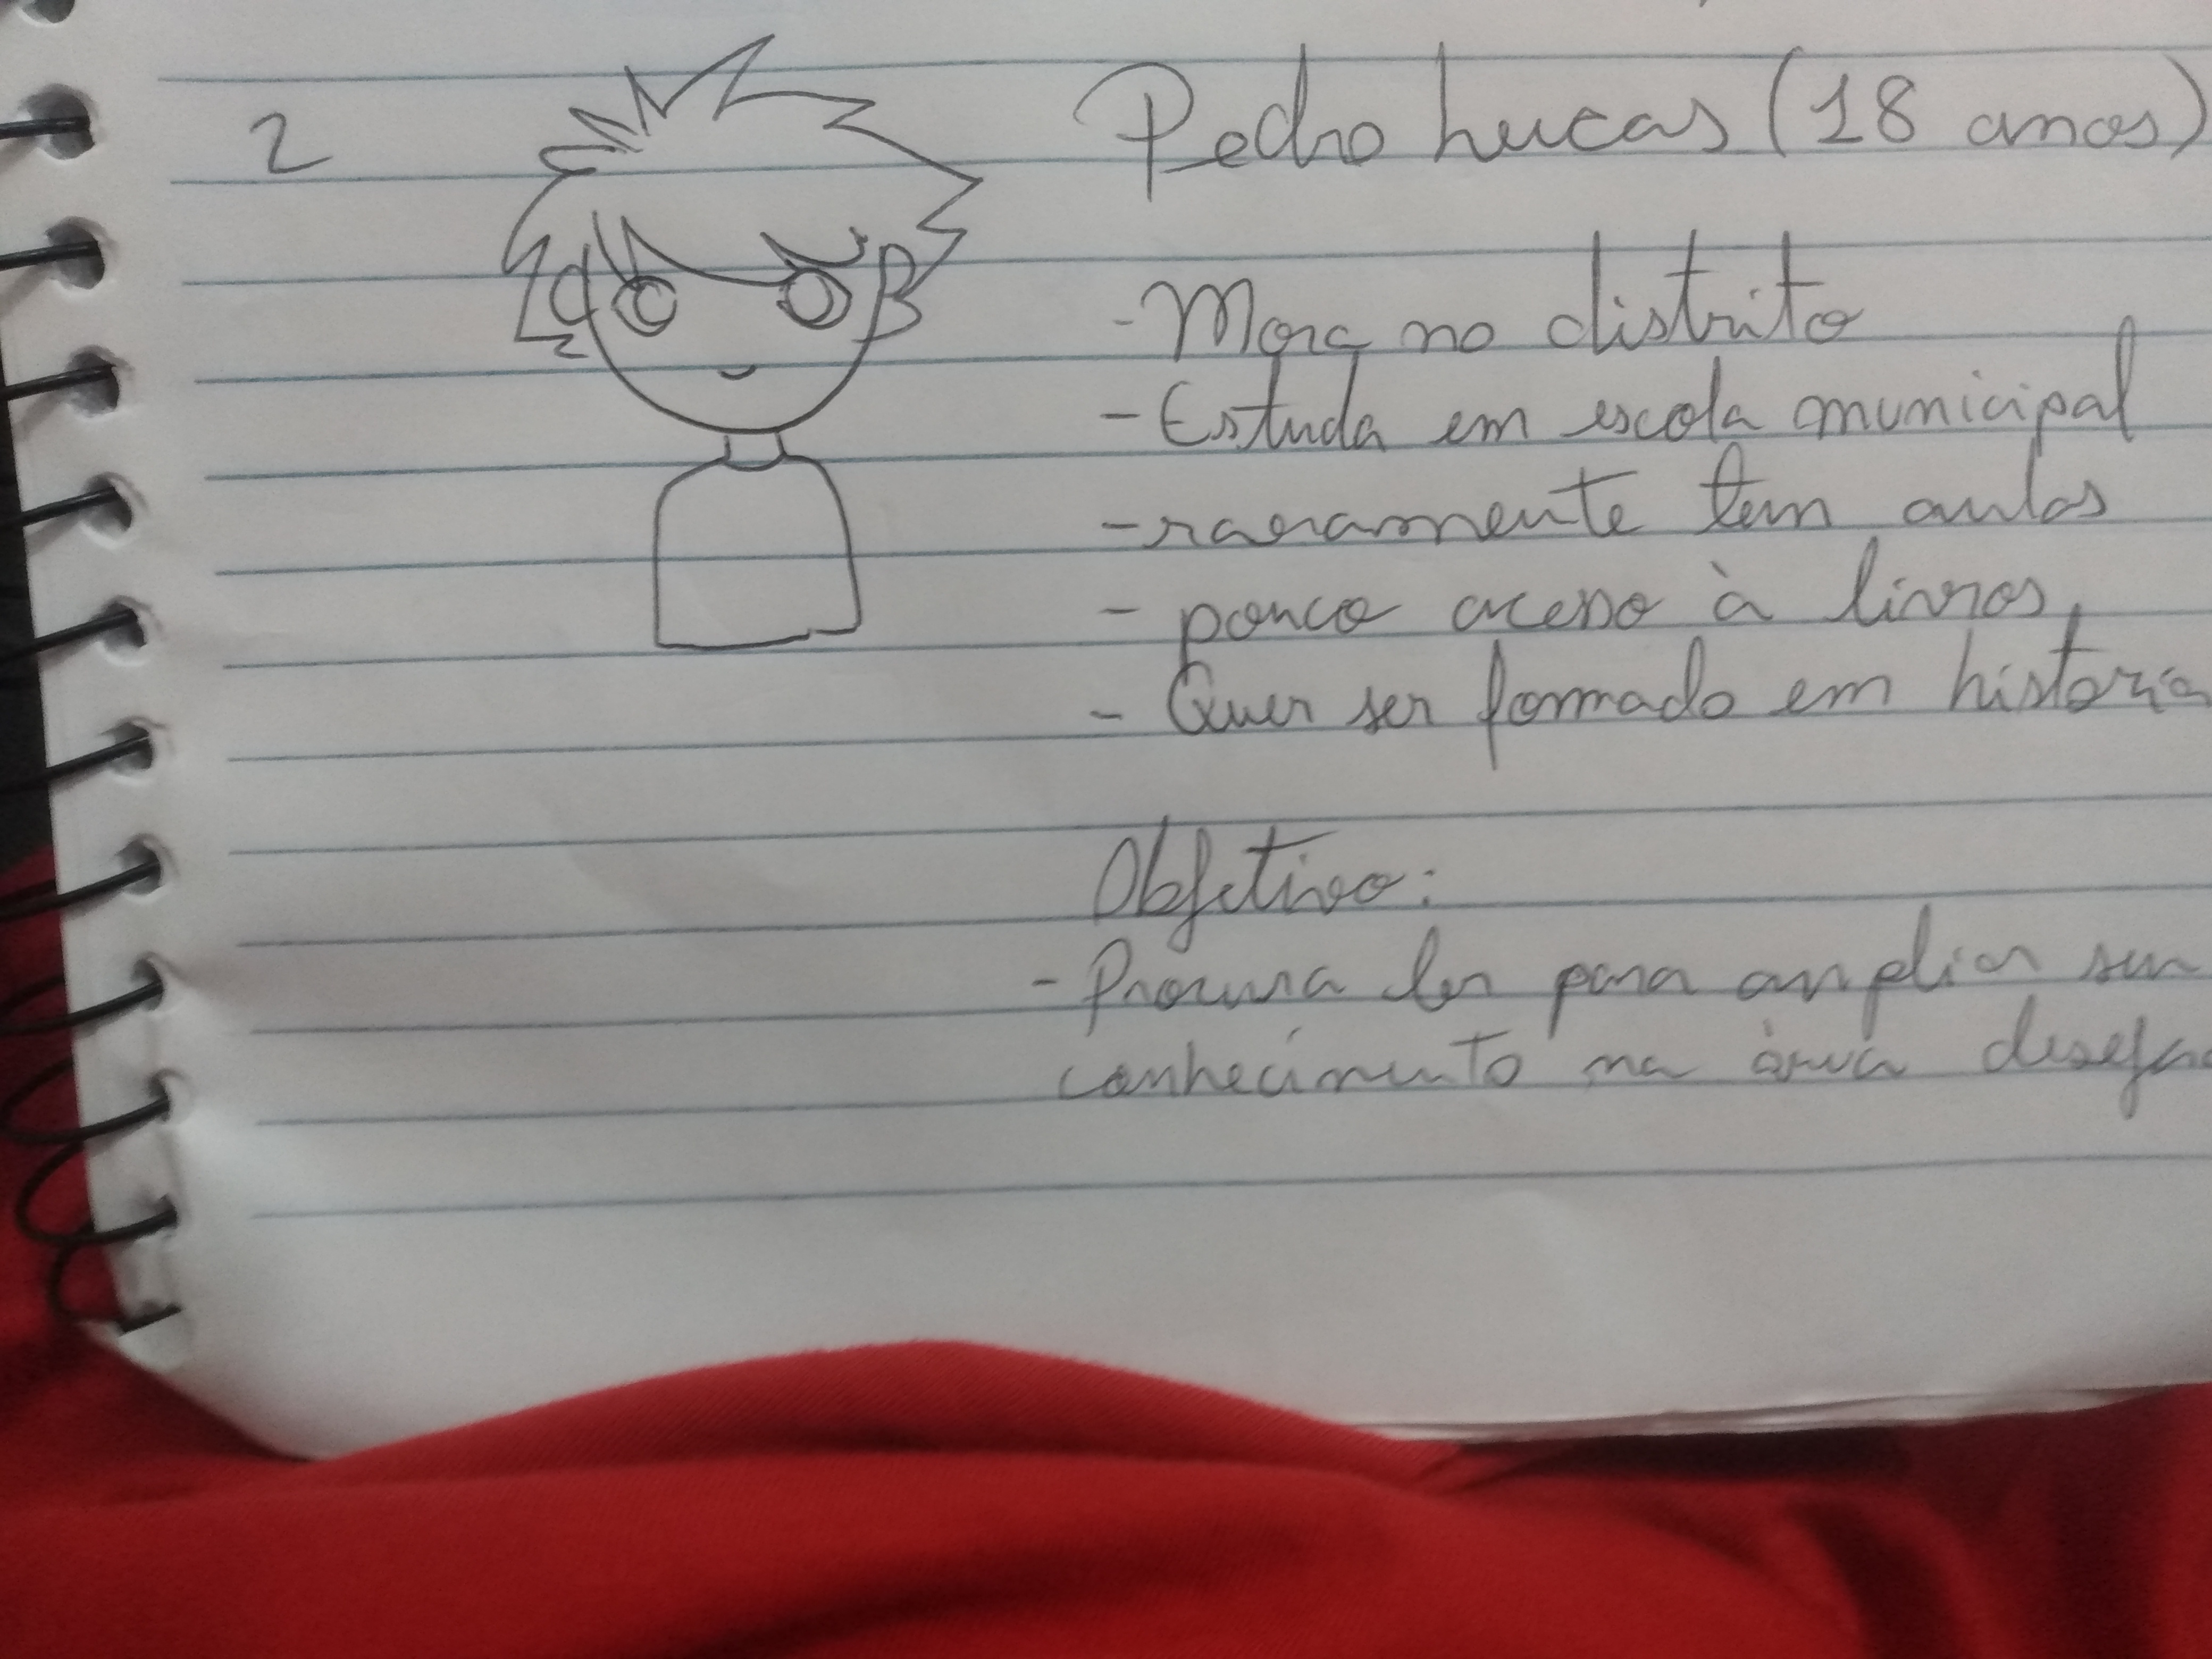 2
Pedro Lucas (18 anos)
- Mora no distrito
- Estuda em escola municipal
- raramente tem aulas
- pouco acesso à livros,
- Quer ser formado em historia
Objetivo:
- Procura ler para ampliar seu
conhecimento na área